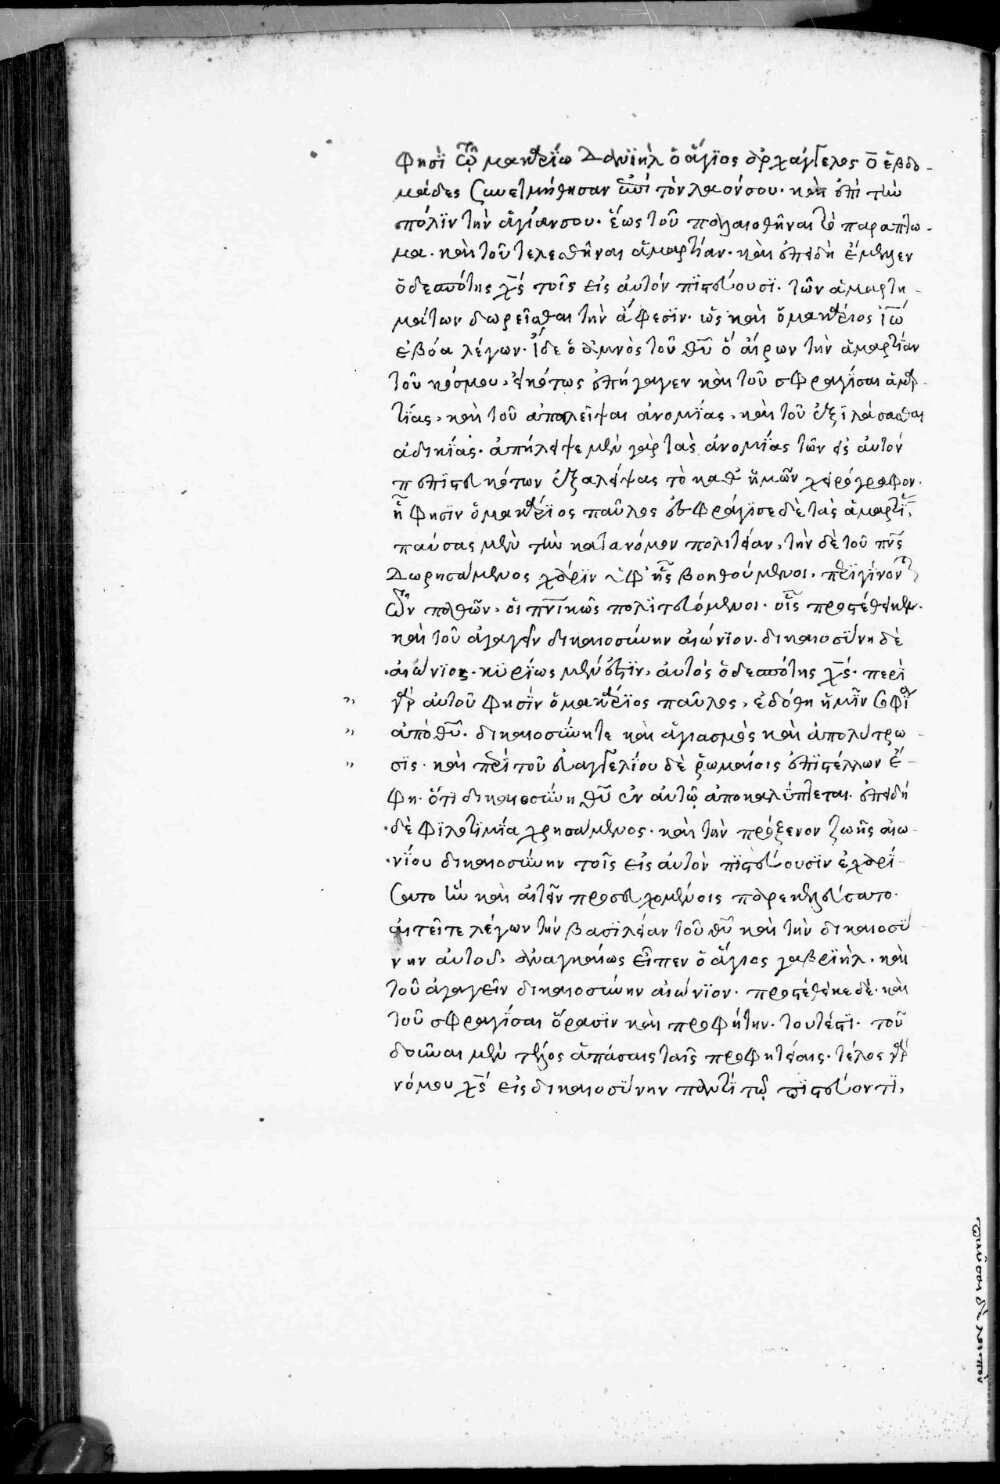 φησὶ τῶ μακαρίω Δανιὴλ ὁ ἅγϊος ἀρχάγγελος ο̄ ἑβδο-
μάδες συνετμήθησαν ἐπὶ τὸν λαόν σου· καὶ ἐπὶ τὴν
πόλϊν τὴν ἁγίαν σου· ἕως τοῦ παλαιοθῆναι τὸ παράπτω-
μα· καὶ τοῦ τελεσθῆναι ἁμαρτίαν· καὶ ἐπειδὴ ἔμελλεν
ὁ δεσπότης χ̅ς̅ τοῖς εἰς αὐτόν πϊστεύουσϊ· τῶν ἁμαρτη-
μάτων δωρεῖσθαι τὴν ἄφεσϊν· ὡς καὶ ὁ μακάριος ϊω̅
ἐβόα λέγων· ἴδε ὁ ἀμνὸς τοῦ θ̅υ̅ ὁ αἴρων τὴν ἁμαρτίαν
τοῦ κόσμου· εἰκότως ἐπήγαγεν καὶ τοῦ σφραγίσαι ἁμαρ-
τίας· καὶ τοῦ ἀπαλεῖψαι ἀνομΐας· καὶ τοῦ ἐξϊλάσασθαι
ἀδικΐας· ἀπήλειψε μὲν γὰρ τὰς ἀνομΐας τῶν εἰς αὐτόν
πεπϊστευκότων ἐξαλείψας τὸ καθ ἡμῶν χειρόγραφον·
ἧ φησϊν ὁ μακάριος παῦλος ἐσφράγϊσε δὲ τὰς ἁμαρτΐ
παύσας μὲν τὴν κατα νόμον πολιτείαν· τὴν δὲ τοῦ π̅ν̅ς̅
δωρησάμενος χάρϊν ὑφ ἧς βοηθούμενοι· περϊγίνοντ
τῶν παθῶν· οἱ πν̅ϊκῶς πολϊτευόμενοι· οἷς προστέθεικεν·
καὶ τοῦ ἀγαγεῖν δικαιοσύνην αιώνϊον· δικαιοσΰνη δὲ
αιώνϊος· κυρΐως μέν ἐστϊν· αὐτός ὁ δεσπότης χ̅ς̅· περὶ
γὰρ αὐτοῦ φησὶν ὁ μακάριος παῦλος· ἐδόθη ἡμῖν σοφΐ
ἀπὸ θ̅υ̅· δικαιοσύνη τε καὶ ἁγιασμὸς καὶ ἀπολύτρω-
σϊς· καὶ περὶ τοῦ εὐαγγελίου δὲ ῥωμαίοις ἐπϊστέλλων ἔ-
φη· ὅτϊ δικαιοσύνη θ̅υ̅ ἐν αὐτῷ ἀποκαλύπτεται· ἐπειδή
δὲ φϊλοτϊμΐα χρησάμενος· καὶ τὴν πρόξενον ζωῆς αἰω-
νΐου δικαιοσύνην τοῖς εἰς αὐτὸν πϊστεύουσϊν ἐχαρί-
σατο καὶ αἰτεῖν προσευχομένοις παρεκελεύσατο·
αἰτεῖτε λέγων τὴν βασϊλείαν τοῦ θ̅υ̅ καὶ τὴν δικαιοσύ
νην αὐτοῦ· ἀναγκαίως εἶπεν ὁ ἅγϊος γαβρϊήλ· καὶ
τοῦ ἀγαγεῖν δικαιοσύνην αιώνϊον· προστέθεικε δὲ· καὶ
τοῦ σφραγΐσαι ὅρασϊν καὶ προφήτην· τουτέστϊ· τοῦ
δοῦναι μὲν τέλος ἁπάσαις ταῖς προφητείαις· τέλος γὰρ
νόμου χ̅ς̅ εἰς δικαιοσΰνην παντὶ τῷ πϊστεύοντϊ·